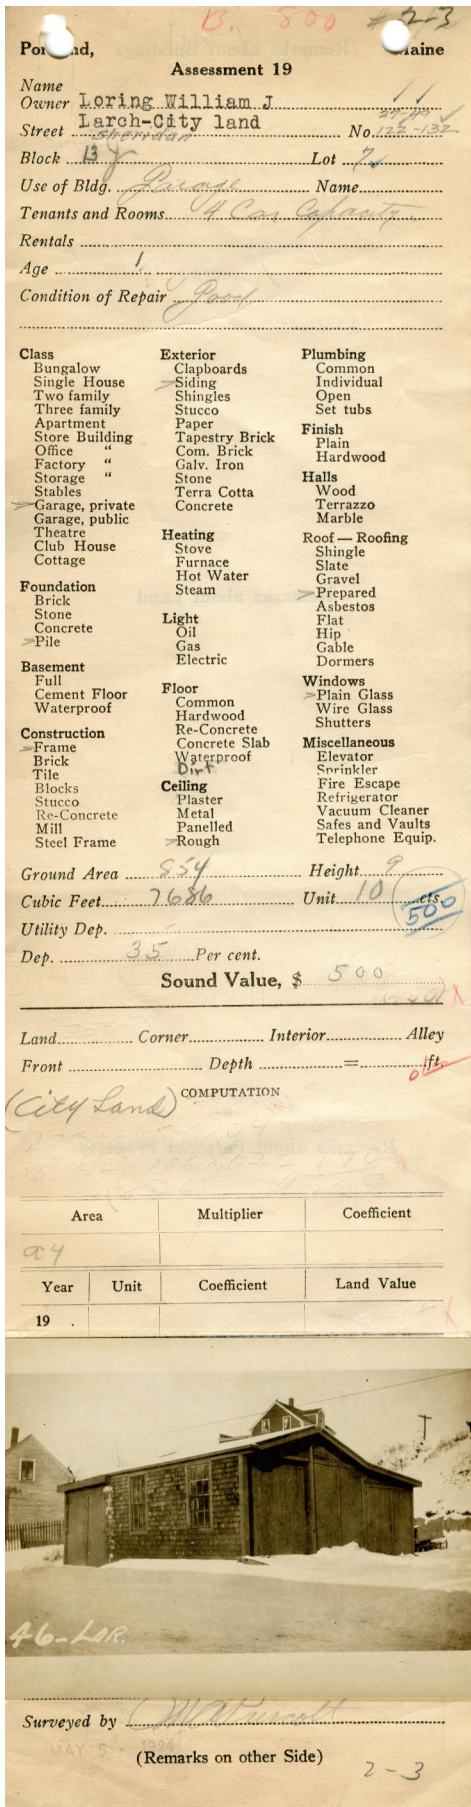 B. 500 # 2-3
Portland, Maine
Assessment 19
Name
Owner Loring William J
Larch-City land 27-49
Street Sheridan No. 122-132
Block 13 J Lot 7
Use of Bldg. Garage Name
Tenants and Rooms 4 Car Capacity
Rentals
Age 1
Condition of Repair Good
Class
Bungalow
Single House
Two family
Three family
Apartment
Store Building
Office "
Factory "
Storage "
Stables
Garage, private
Garage, public
Theatre
Club House
Cottage
Foundation
Brick
Stone
Concrete
Pile
Basement
Full
Cement Floor
Waterproof
Construction
Frame
Brick
Tile
Blocks
Stucco
Re-Concrete
Mill
Steel Frame
Exterior
Clapboards
Siding
Shingles
Stucco
Paper
Tapestry Brick
Com. Brick
Galv. Iron
Stone
Terra Cotta
Concrete
Heating
Stove
Furnace
Hot Water
Steam
Light
Oil
Gas
Electric
Floor
Common
Hardwood
Re-Concrete
Concrete Slab
Waterproof
Dirt
Ceiling
Plaster
Metal
Panelled
Rough
Plumbing
Common
Individual
Open
Set tubs
Finish
Plain
Hardwood
Halls
Wood
Terrazzo
Marble
Roof — Roofing
Shingle
Slate
Gravel
Prepared
Asbestos
Flat
Hip
Gable
Dormers
Windows
Plain Glass
Wire Glass
Shutters
Miscellaneous
Elevator
Sprinkler
Fire Escape
Refrigerator
Vacuum Cleaner
Safes and Vaults
Telephone Equip.
Ground Area 854 Height 9
Cubic Feet 7686 Unit 10 cts.
500
Utility Dep.
Dep. 35 Per cent.
Sound Value, $ 500
Land Corner Interior Alley
Front Depth = ft.
COMPUTATION
(City Land)
Area Multiplier Coefficient
a4
Year Unit Coefficient Land Value
19 .
46-LAR.
Surveyed by
MAY 5 - 1924
(Remarks on other Side)
2-3